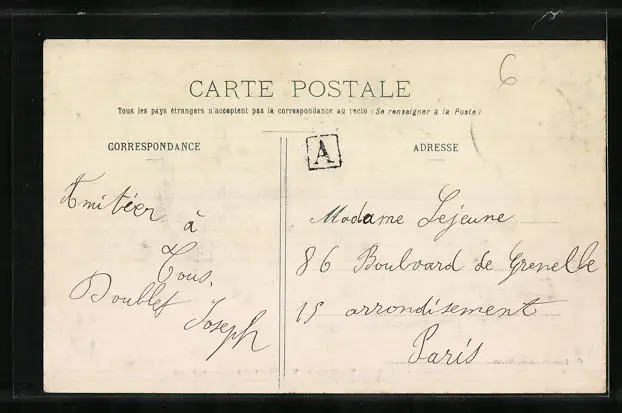 6
CARTE POSTALE
Tous les pays étrangers n'acceptent pas la correspondance au recto (Se renseigner à la Poste)
CORRESPONDANCE
A
ADRESSE
Amitiér
à
Tous.
Doublet
Joseph
Madame Lejeune
86 Boulvard de Grenelle
15 arrondisement
Paris